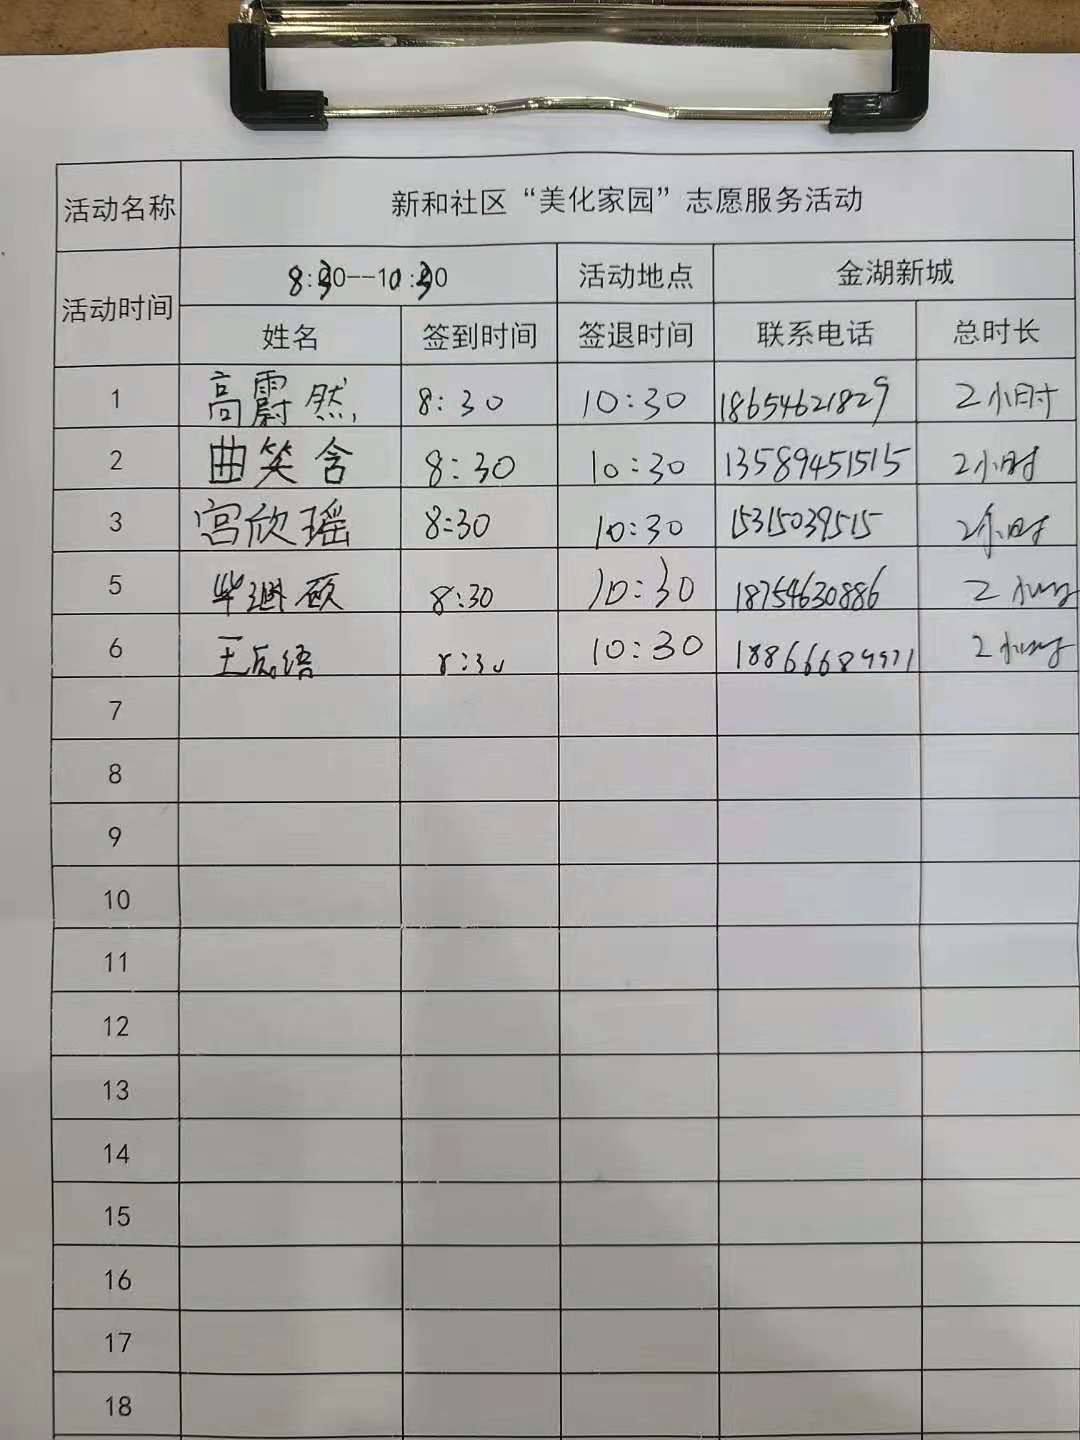 活动名称 新和社区“美化家园”志愿服务活动
活动时间 8:30--10:30 活动地点 金湖新城
姓名 签到时间 签退时间 联系电话 总时长
1 高霨然 8:30 10:30 18654621829 2小时
2 曲笑含 8:30 10:30 13589451515 2小时
3 宫欣瑶 8:30 10:30 15315039515 2小时
5 8:30 10:30 18754630886 2小时
6 8:30 10:30 2小时
7
8
9
10
11
12
13
14
15
16
17
18